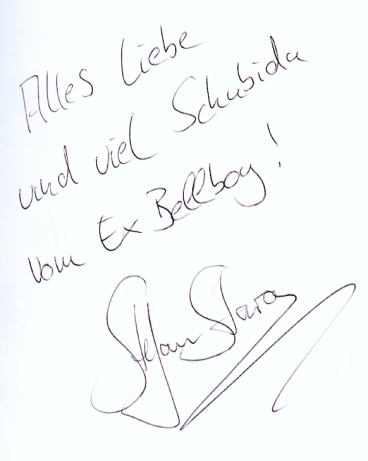 Alles Liebe
und viel Schubidu
vom Ex Bellboy!
Stefan